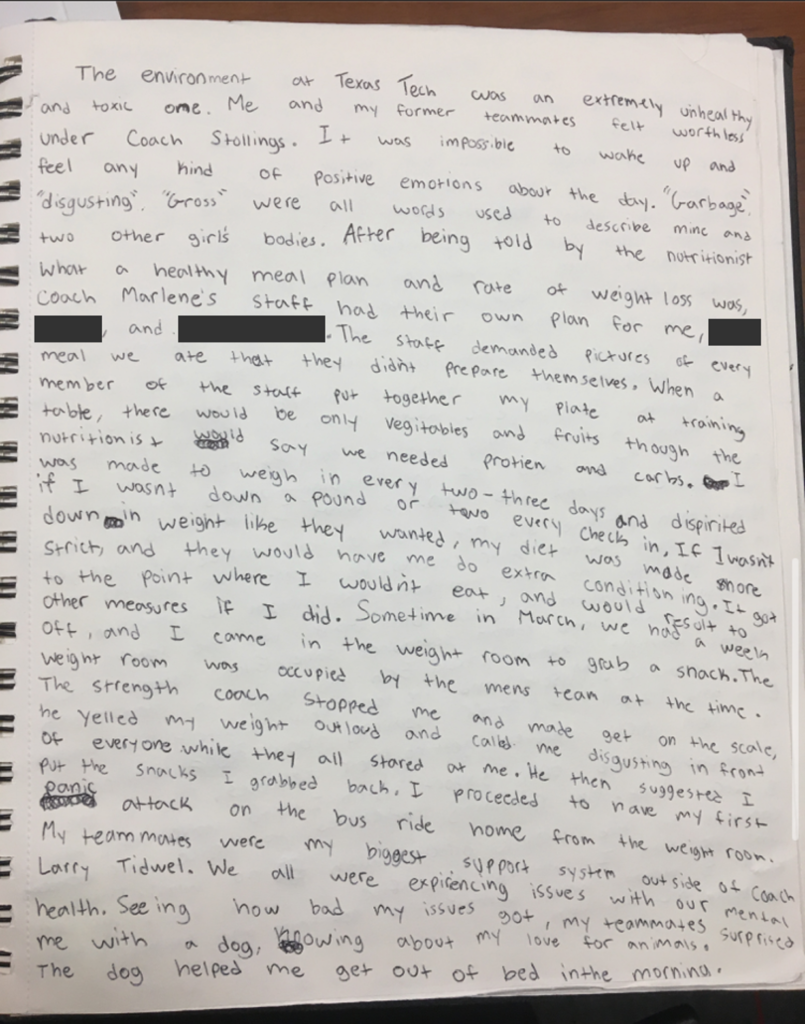 The environment at Texas Tech was an extremely unhealthy
and toxic one. Me and my former teammates felt worthless
under Coach Stollings. It was impossible to wake up and
feel any kind of positive emotions about the day. "Garbage",
"disgusting". "Gross" were all words used to describe mine and
two other girl's bodies. After being told by the nutritionist
what a healthy meal plan and rate of weight loss was,
Coach Marlene's staff had their own plan for me,
, and . The staff demanded pictures of every
meal we ate that they didn't prepare themselves. When a
member of the staff put together my plate at training
table, there would be only vegitables and fruits though the
nutritionist would say we needed protien and carbs. I
was made to weigh in every two-three days and dispirited
if I wasnt down a pound or two every check in, If I wasn't
down in weight like they wanted, my diet was made more
strict, and they would have me do extra conditioning. It got
to the point where I wouldn't eat, and would result to
other measures if I did. Sometime in March, we had a week
off, and I came in the weight room to grab a snack. The
weight room was occupied by the mens team at the time.
The strength coach stopped me and made get on the scale,
he yelled my weight outloud and called me disgusting in front
of everyone while they all stared at me. He then suggested I
put the snacks I grabbed back. I proceeded to have my first
panic attack on the bus ride home from the weight room.
My teammates were my biggest support system outside of Coach
Larry Tidwel. We all were expirencing issues with our mental
health. Seeing how bad my issues got, my teammates surprised
me with a dog, knowing about my love for animals.
The dog helped me get out of bed inthe morning.